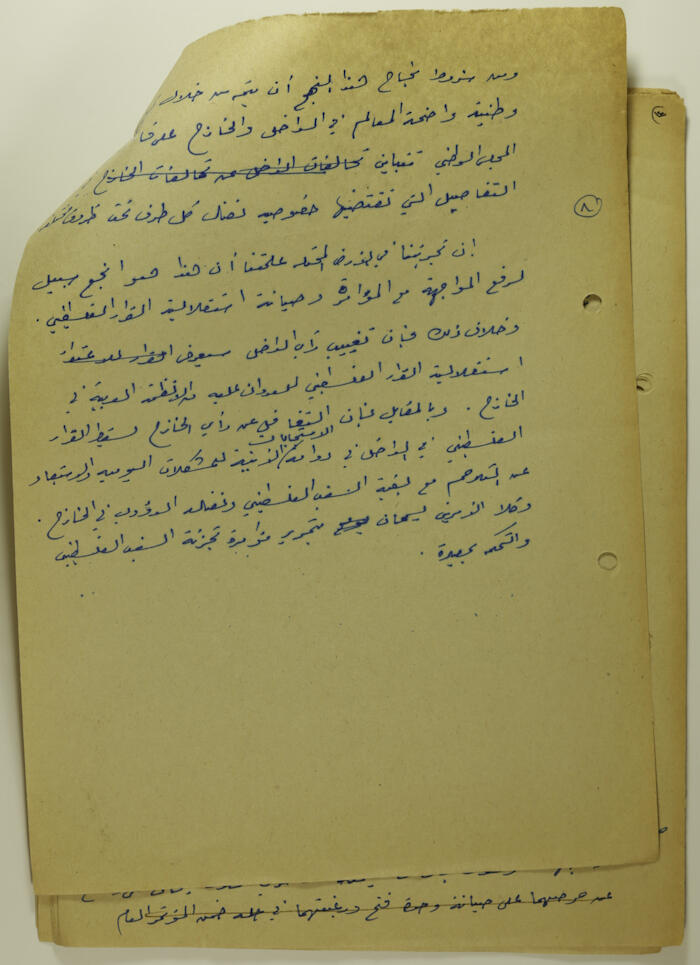 ومن شروط نجاح هذا المنهج أن يتم من خلال
وطنية واضحة المعالم في الداخل والخارج على
المجلس الوطني تتباين تحالفات الداخل عن تحالفات الخارج
التفاصيل التي تقتضيها خصوصية نضال كل طرف تحت ظروف
٨
إن تجربتنا في الأرض المحتلة علمتنا أن هذا هو أنجع سبيل
لرفع المواجهة مع المؤامرة وصيانة استقلالية القرار الفلسطيني .
وخلاف ذلك فإن تغييب رأي الداخل سيعرض القرار
استقلالية القرار الفلسطيني للعدوان عليه من الأنظمة العربية في
الخارج . وبالمقابل فإن التغافل عن رأي الخارج يسقط القرار
الاستجابات
الفلسطيني في الداخل في دوامة الذرية للمشكلات اليومية والابتعاد
عن التلاحم مع بقية الشعب الفلسطيني ونضاله الدؤوب في الخارج .
وكلا الأمرين يسمحان بتمرير مؤامرة تجزئة الشعب الفلسطيني
والتحكم بمصيره .
عن حرصهما على صيانة وحدة فتح ورغبتهما في ضمن المؤتمر العام